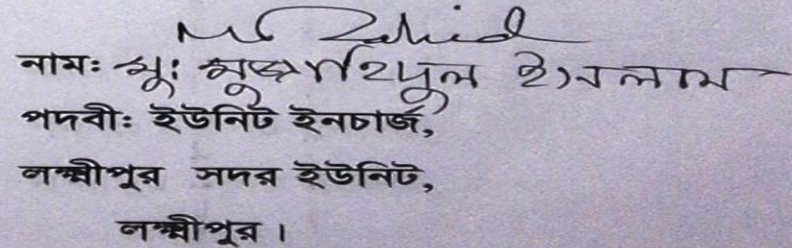 Md Zahid
নামঃ মুঃ মুজাহিদুল ইসলাম
পদবীঃ ইউনিট ইনচার্জ,
লক্ষ্মীপুর সদর ইউনিট,
লক্ষ্মীপুর।